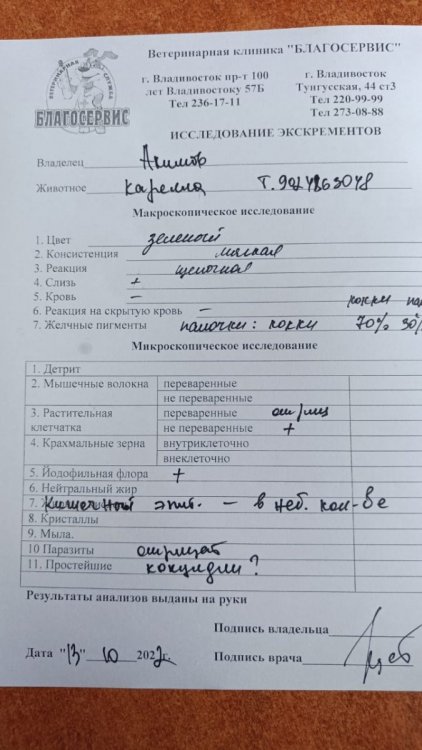 ВЕТЕРИНАРНАЯ СЛУЖБА
БЛАГОСЕРВИС
Ветеринарная клиника "БЛАГОСЕРВИС"
г. Владивосток пр-т 100 г. Владивосток
лет Владивостоку 57Б Тунгусская, 44 ст3
Тел 236-17-11 Тел 220-99-99
Тел 273-08-88
ИССЛЕДОВАНИЕ ЭКСКРЕМЕНТОВ
Владелец Акимов
Животное карелла Т.
Макроскопическое исследование
1. Цвет зеленый
2. Консистенция мягкая
3. Реакция щелочная
4. Слизь +
5. Кровь –
6. Реакция на скрытую кровь – кокки
7. Желчные пигменты палочки: кокки 70% 30%
Микроскопическое исследование
1. Детрит
2. Мышечные волокна переваренные
не переваренные
3. Растительная переваренные отриц
клетчатка не переваренные +
4. Крахмальные зерна внутриклеточно
внеклеточно
5. Йодофильная флора +
6. Нейтральный жир
7. Кишечный эпит. – в неб. кол-ве
8. Кристаллы
9. Мыла.
10 Паразиты отрицат
11. Простейшие кокцидии?
Результаты анализов выданы на руки
Подпись владельца
Дата "13" 10 2022г. Подпись врача